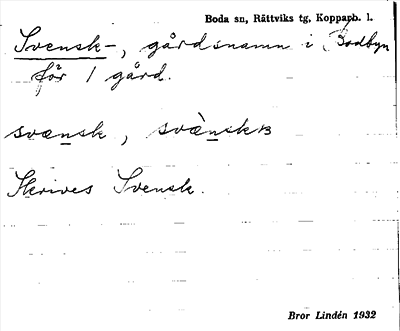 Boda sn, Rättviks tg, Koppapb. l.
Svensk-, gårdsnamn i Bodbyn
för 1 gård.
svænsk, svæ̀nskɞ
Skrives Svensk.
Bror Lindén 1932